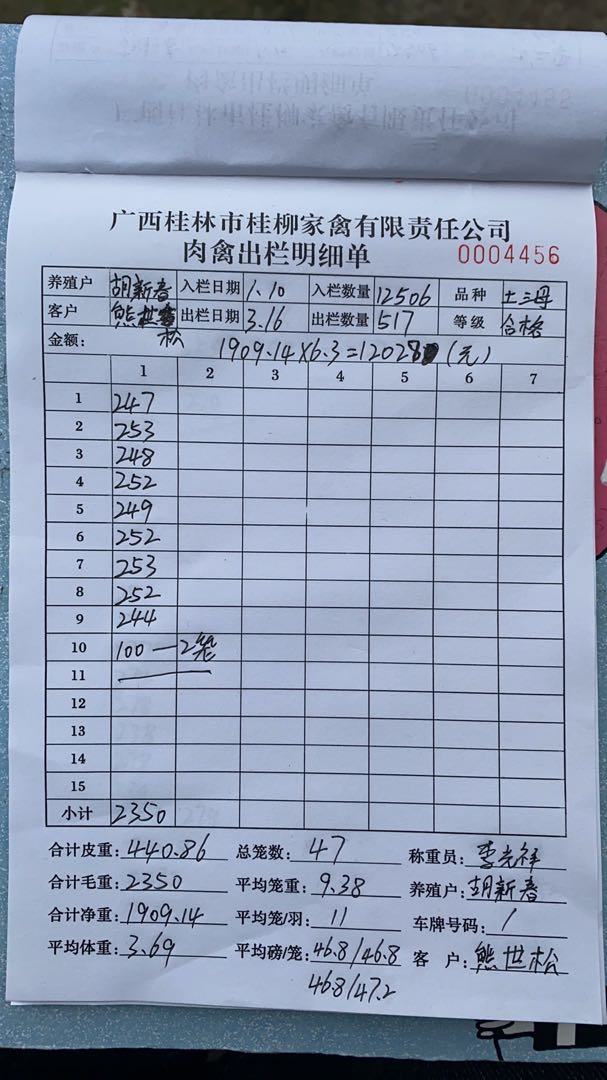 广西桂林市桂柳家禽有限责任公司
肉禽出栏明细单 0004456
养殖户 胡新春 入栏日期 1.10 入栏数量 12506 品种 土三母
客户 熊世松 出栏日期 3.16 出栏数量 517 等级 合格
金额: 1909.14×6.3=12028 (元)
1 2 3 4 5 6 7
1 247
2 253
3 248
4 252
5 249
6 252
7 253
8 252
9 244
10 100—2笼
11
12
13
14
15
小计 2350
合计皮重: 440.86 总笼数: 47 称重员: 李光祥
合计毛重: 2350 平均笼重: 9.38 养殖户: 胡新春
合计净重: 1909.14 平均笼/羽: 11 车牌号码: /
平均体重: 3.69 平均磅/笼: 46.8/46.8 客 户: 熊世松
46.8/47.2